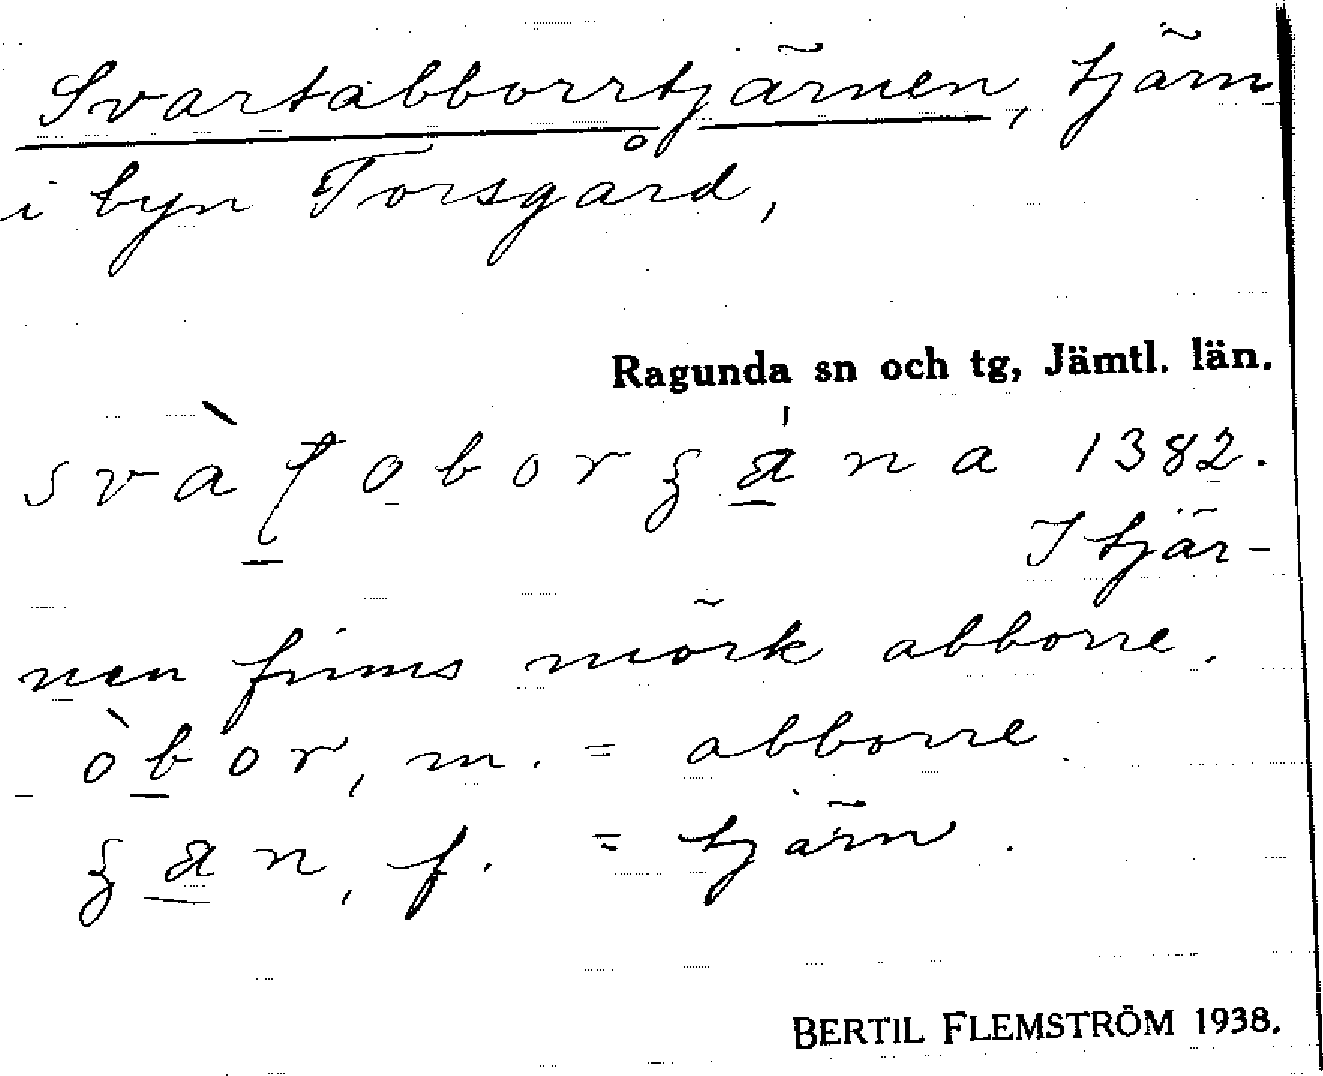 Svartabborrtjärnen, tjärn
i byn Torsgård,
Ragunda sn och tg, Jämtl. län.
1382.
I tjär-
nen finns mörk abborre.
òbor, m. = abborre.
f. = tjärn.
BERTIL FLEMSTRÖM 1938.